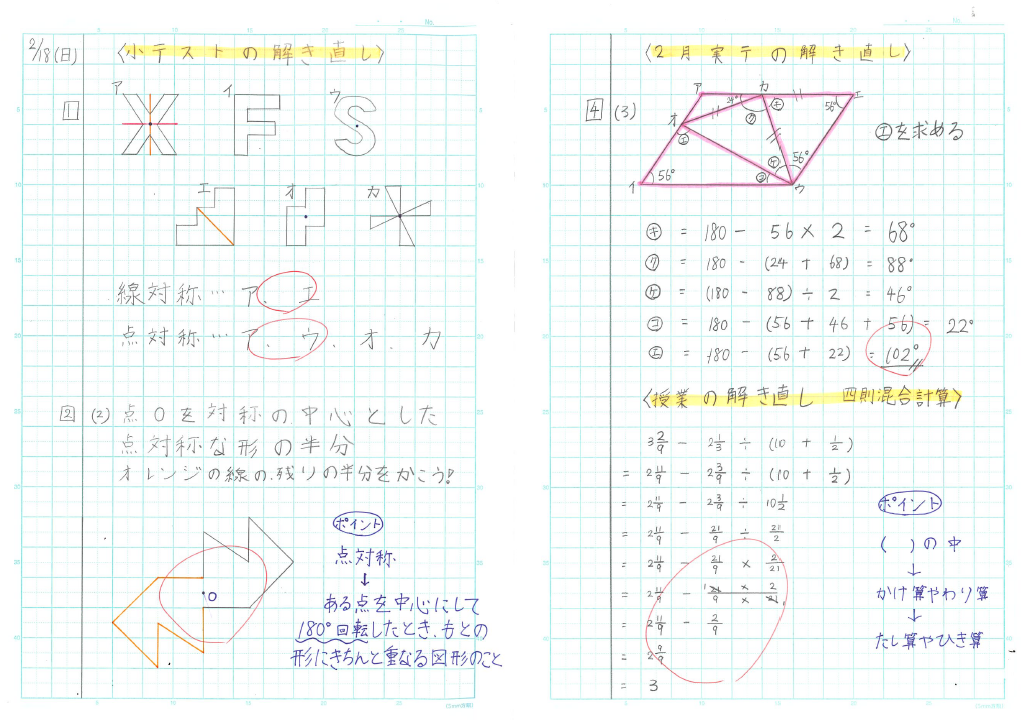 2/18(日) 〈小テストの解き直し〉
1
ア イ ウ
エ オ カ
線対称…ア、エ
点対称…ア、ウ、オ、カ
2 (2) 点Oを対称の中心とした
点対称な形の半分
オレンジの線の、残りの半分をかこう!
O
ポイント
点対称
↓
ある点を中心にして
180°回転したとき、もとの
形にきちんと重なる図形のこと
No.
〈2月実テの解き直し〉
4 (3)
ア カ エ
24° キ 56°
ク
オ
エ
ケ 56°
56° コ
イ ウ
エを求める
キ = 180 - 56 × 2 = 68°
ク = 180 - (24 + 68) = 88°
ケ = (180 - 88) ÷ 2 = 46°
コ = 180 - (56 + 46 + 56) = 22°
エ = 180 - (56 + 22) = 102°
〈授業の解き直し 四則混合計算〉
3 2/9 - 2 1/3 ÷ (10 + 1/2)
= 2 11/9 - 2 3/9 ÷ (10 + 1/2)
= 2 11/9 - 2 3/9 ÷ 10 1/2
= 2 11/9 - 21/9 ÷ 21/2
= 2 11/9 - 21/9 × 2/21
= 2 11/9 - 1 21 × 2 / 9 × 21 1
= 2 11/9 - 2/9
= 2 9/9
= 3
ポイント
( )の中
↓
かけ算やわり算
↓
たし算やひき算